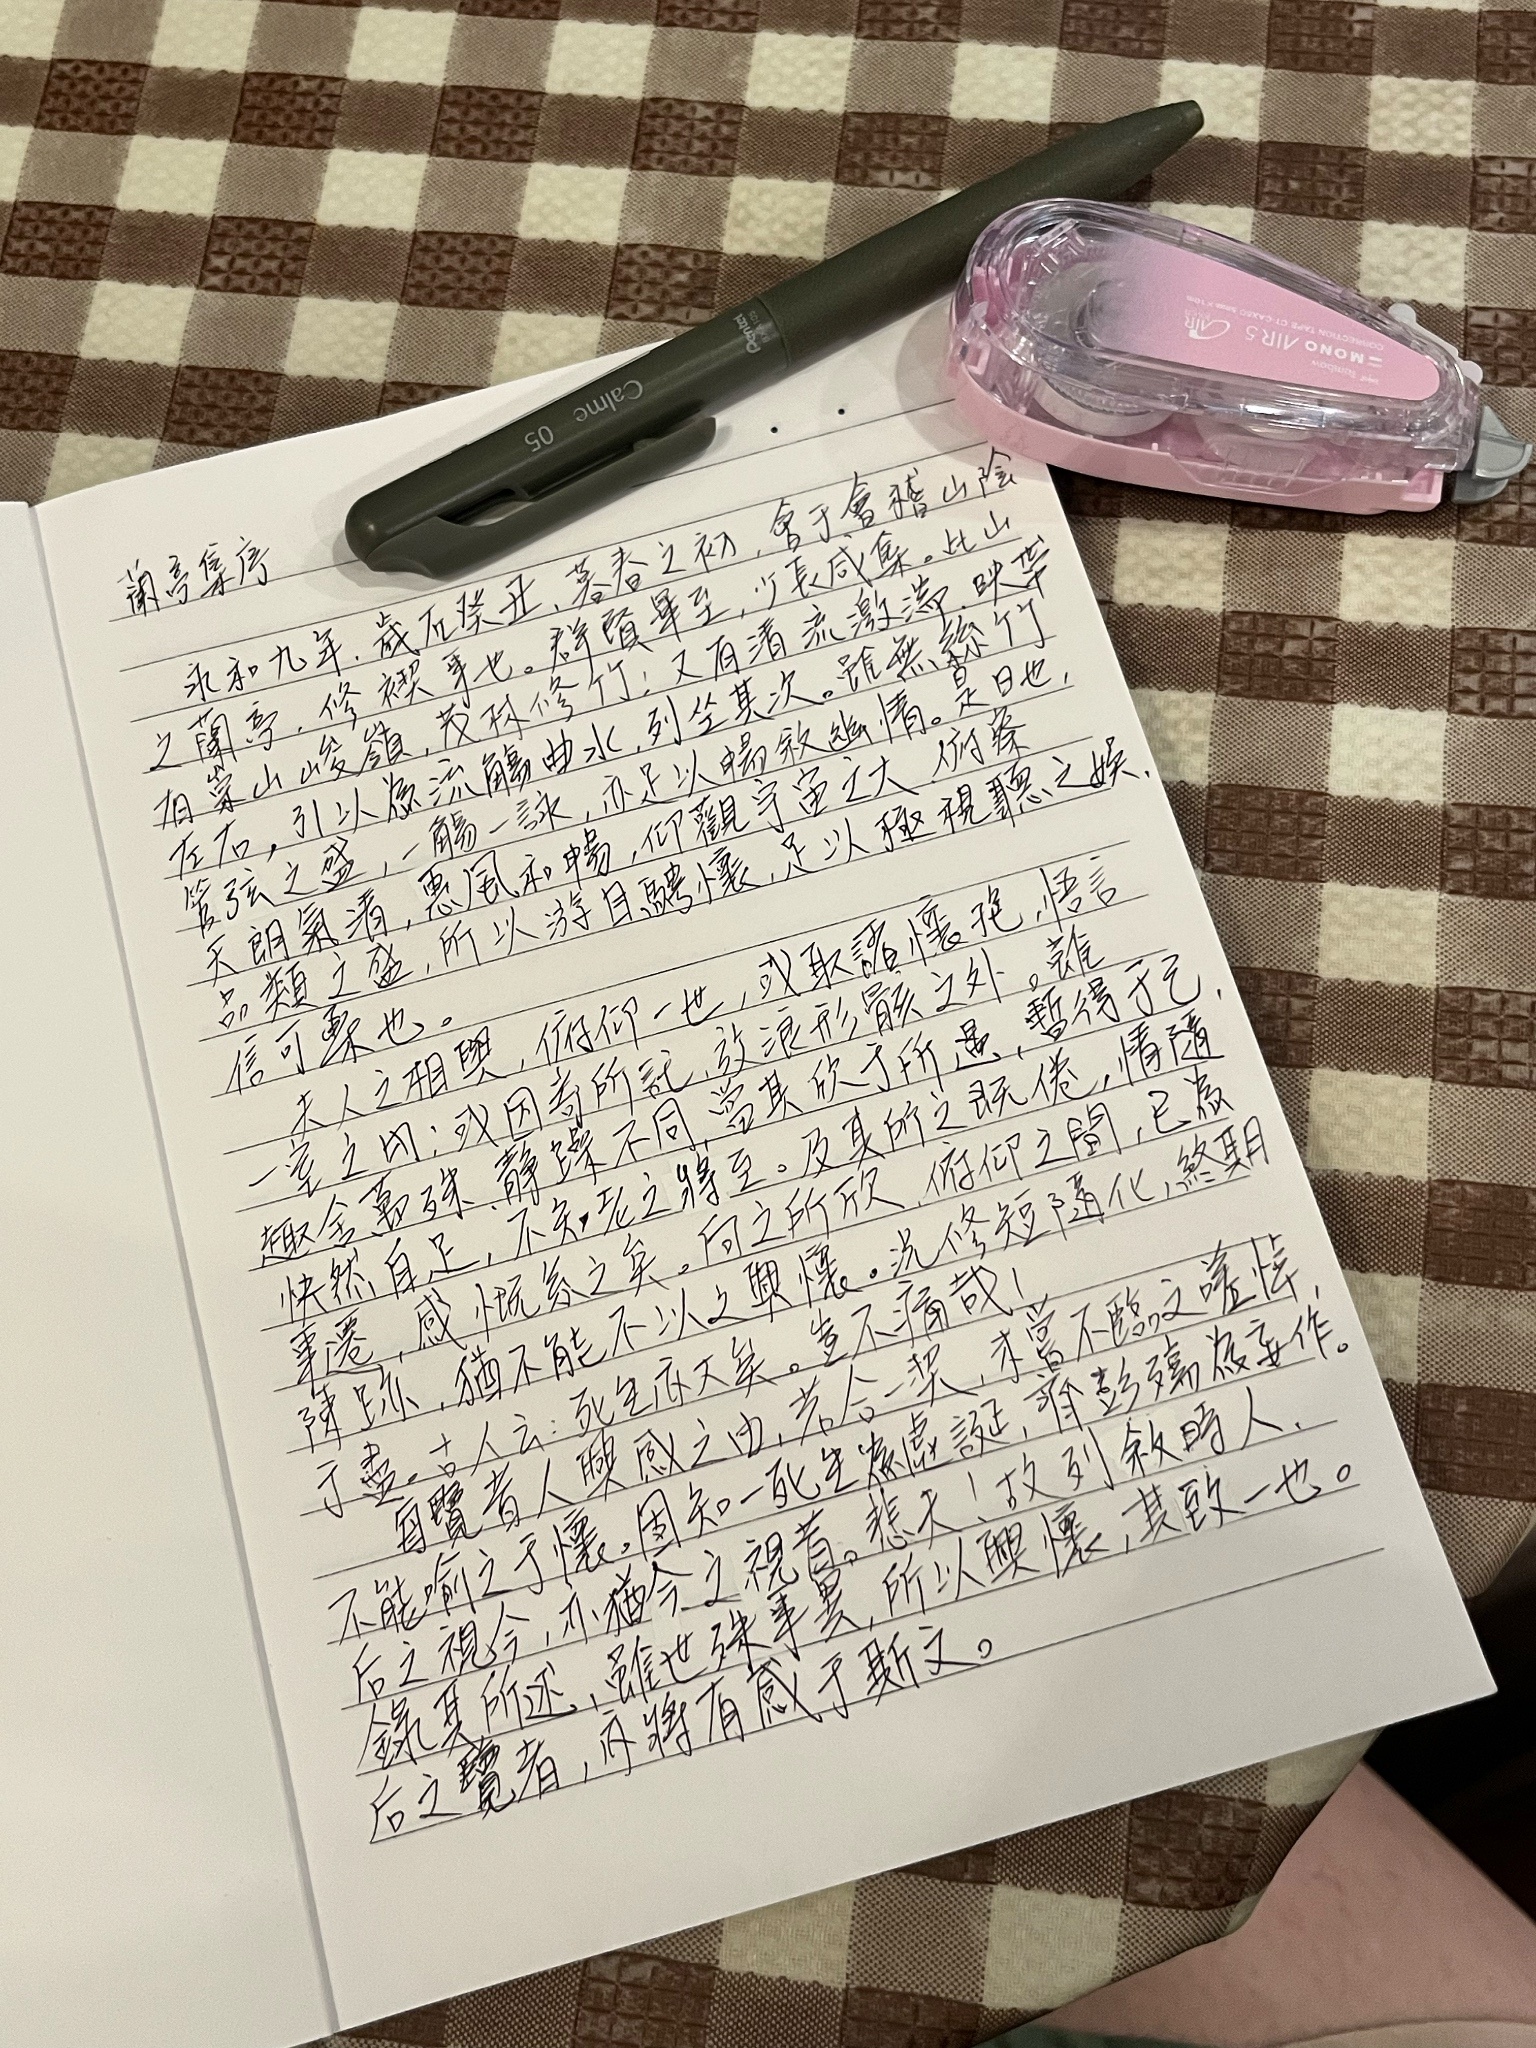 Calme 05
Pentel
Tombow
MONO AIR 5
AIR
CORRECTION TAPE CT-CAX5C 5mm×10m
蘭亭集序
永和九年，歲在癸丑，暮春之初，會于會稽山陰
之蘭亭，修禊事也。群賢畢至，少長咸集。此山
有崇山峻嶺，茂林修竹；又有清流激湍，映帶
左右，引以為流觴曲水，列坐其次。雖無絲竹
管弦之盛，一觴一詠，亦足以暢敘幽情。是日也，
天朗氣清，惠風和暢，仰觀宇宙之大 俯察
品類之盛，所以游目騁懷，足以極視聽之娛，
信可樂也。
夫人之相與，俯仰一世，或取諸懷抱，悟言
一室之內；或因寄所託，放浪形骸之外。雖
趣舍萬殊，靜躁不同，當其欣于所遇，暫得于己，
快然自足，不知老之將至。及其所之既倦，情隨
事遷，感慨系之矣。向之所欣，俯仰之間，已為
陳跡，猶不能不以之興懷。況修短隨化，終期
于盡。古人云：死生亦大矣。豈不痛哉！
每覽昔人興感之由，若合一契，未嘗不臨文嗟悼，
不能喻之于懷。固知一死生為虛誕，齊彭殤為妄作。
后之視今，亦猶今之視昔。悲夫！故列敘時人，
錄其所述，雖世殊事異，所以興懷，其致一也。
后之覽者，亦將有感于斯文。